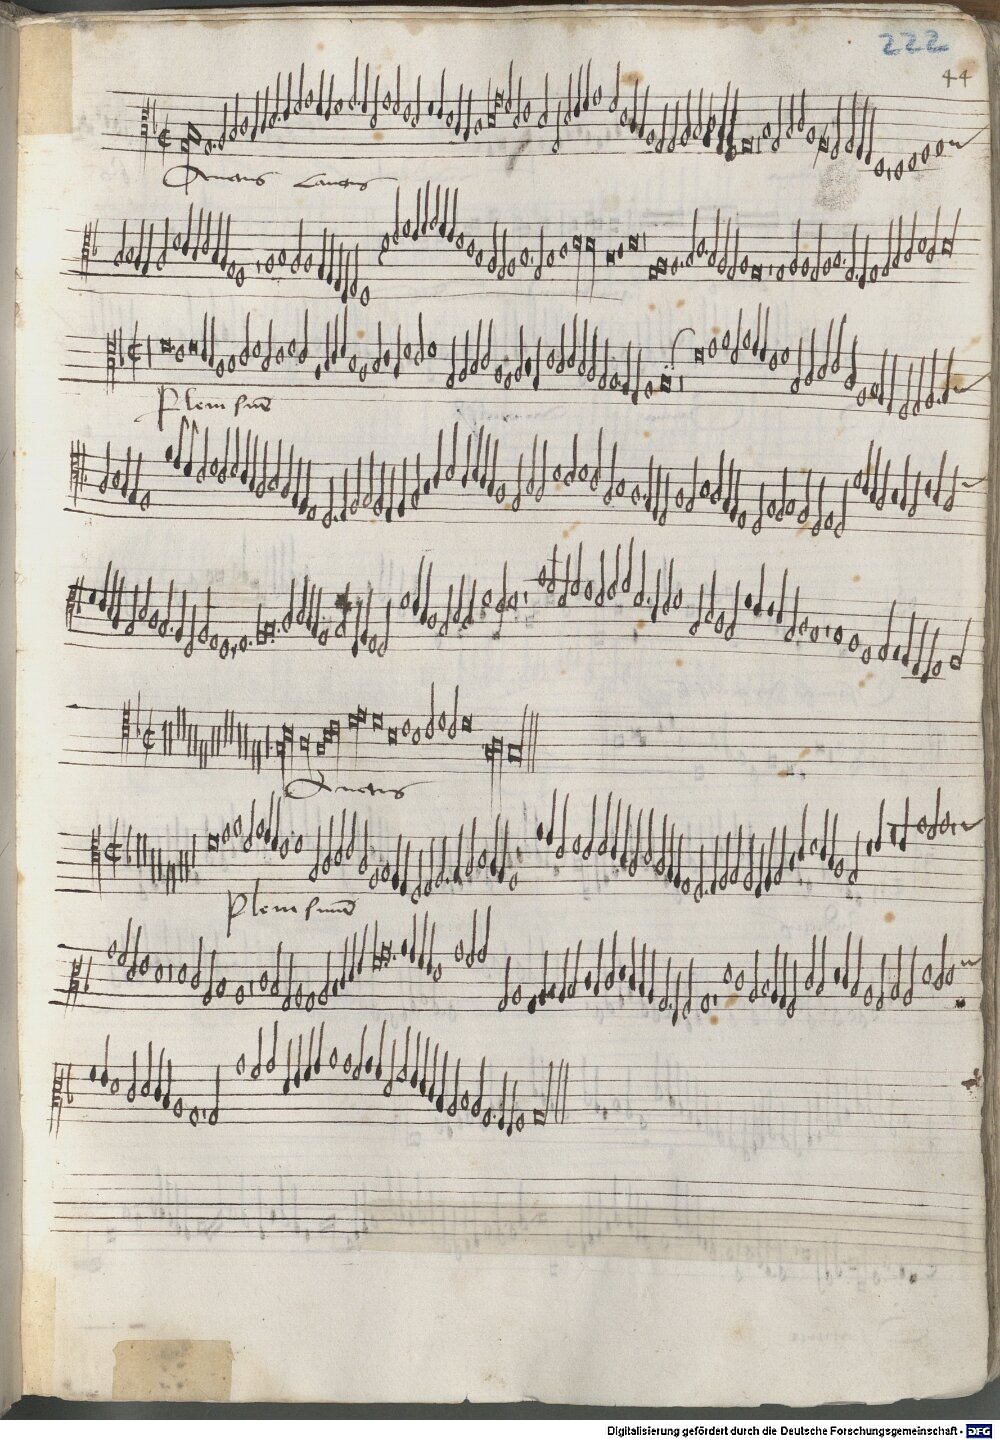 222
44
Sanctus Sanctus
Pleni sunt
Sanctus
Pleni sunt
Digitalisierung gefördert durch die Deutsche Forschungsgemeinschaft - DFG